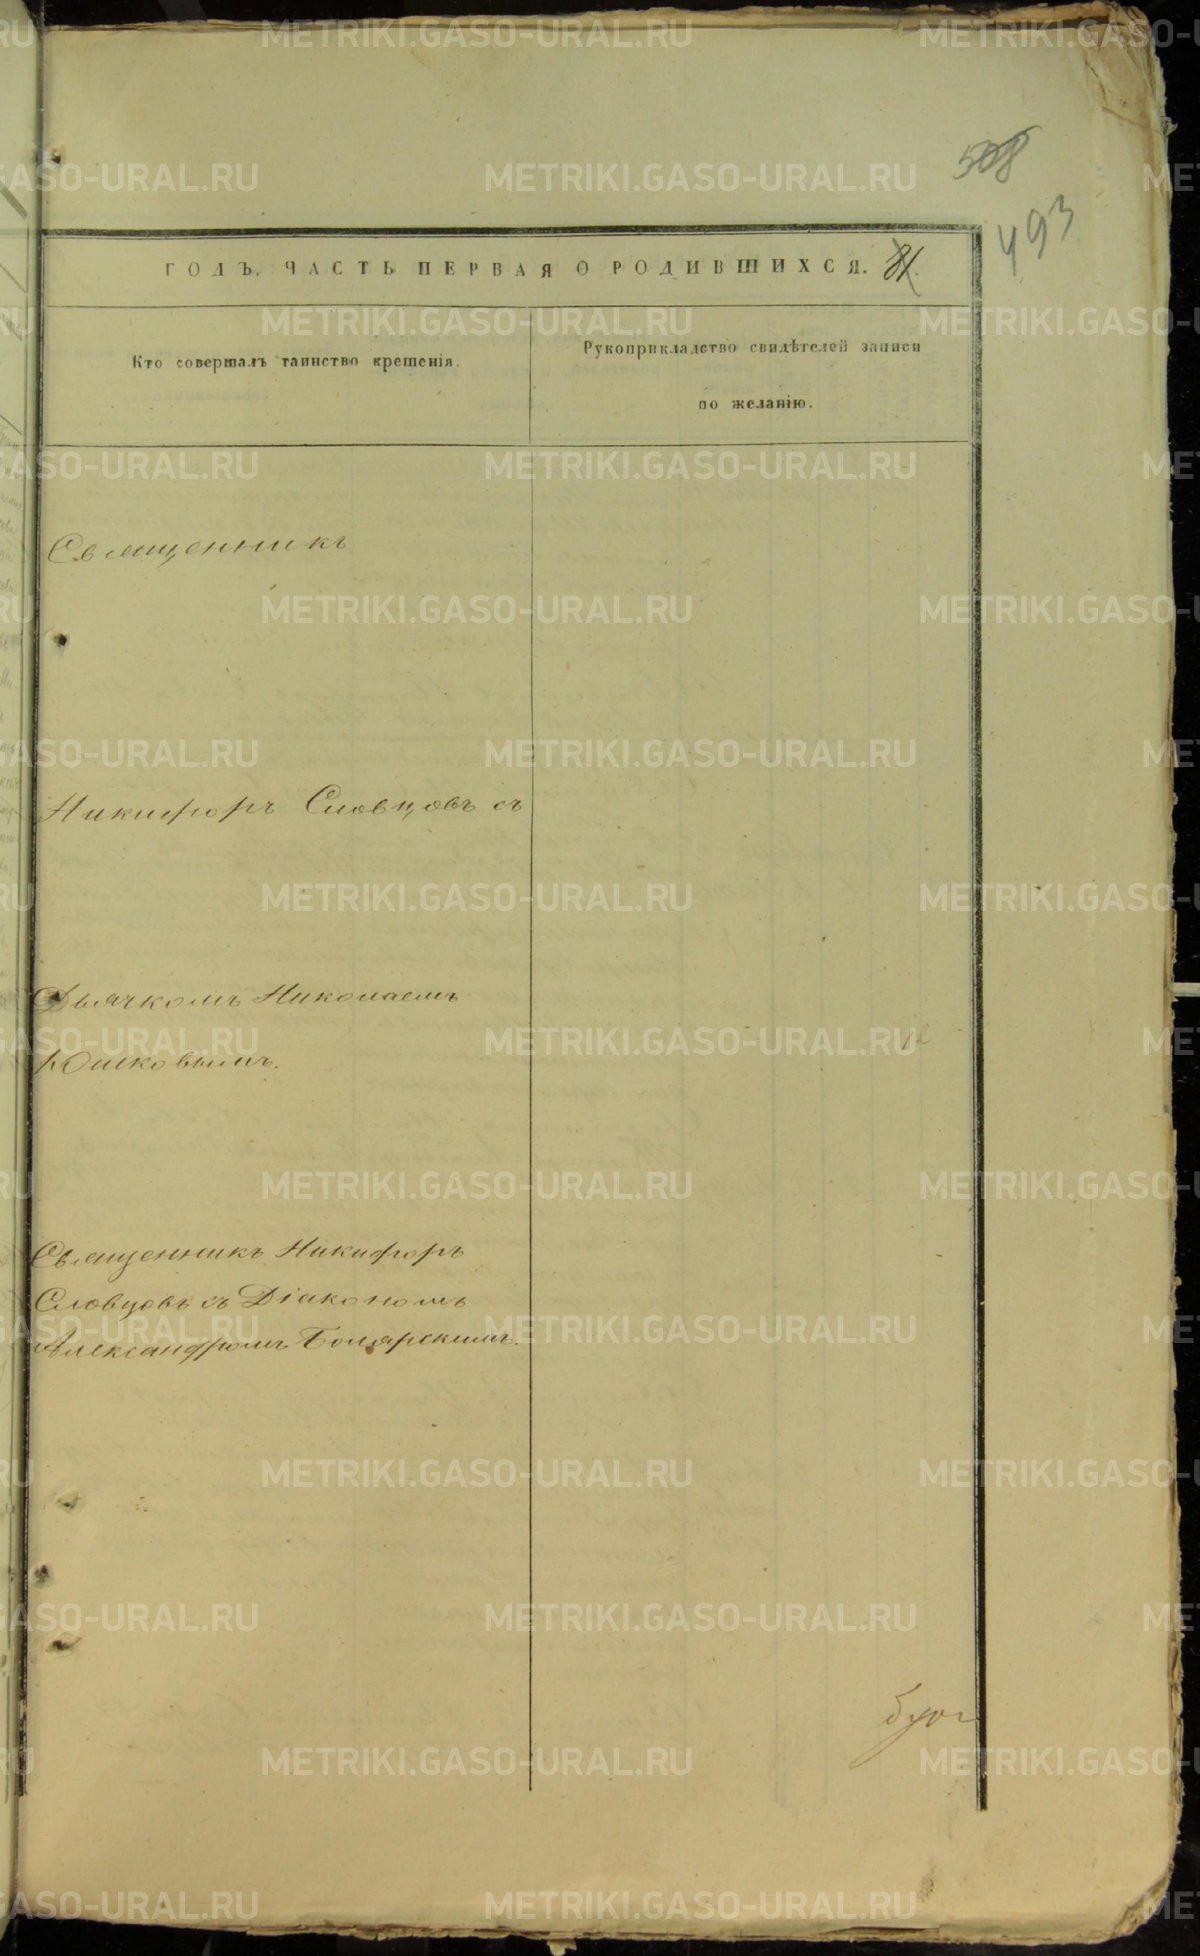 508
493
ГОДЪ. ЧАСТЬ ПЕРВАЯ О РОДИВШИХСЯ.
Кто совершалъ таинство крещенія.
Рукоприкладство свидѣтелей записи
по желанію.
Священникъ
Никифоръ Словцовъ съ
Дьячкомъ Николаемъ
Юшковымъ.
Священникъ Никифоръ
Словцовъ съ Діакономъ
Александромъ Боярскимъ.
METRIKI.GASO-URAL.RU